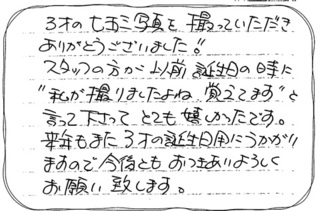 3才の七五三写真を撮っていただき
ありがとうございました!!
スタッフの方が以前誕生日の時に
"私が撮りましたよね、覚えてます"と
言って下さって とても嬉しかったです。
来年もまた3才の誕生日用にうかがい
ますので今後とも おつきあいよろしく
お願い致します。